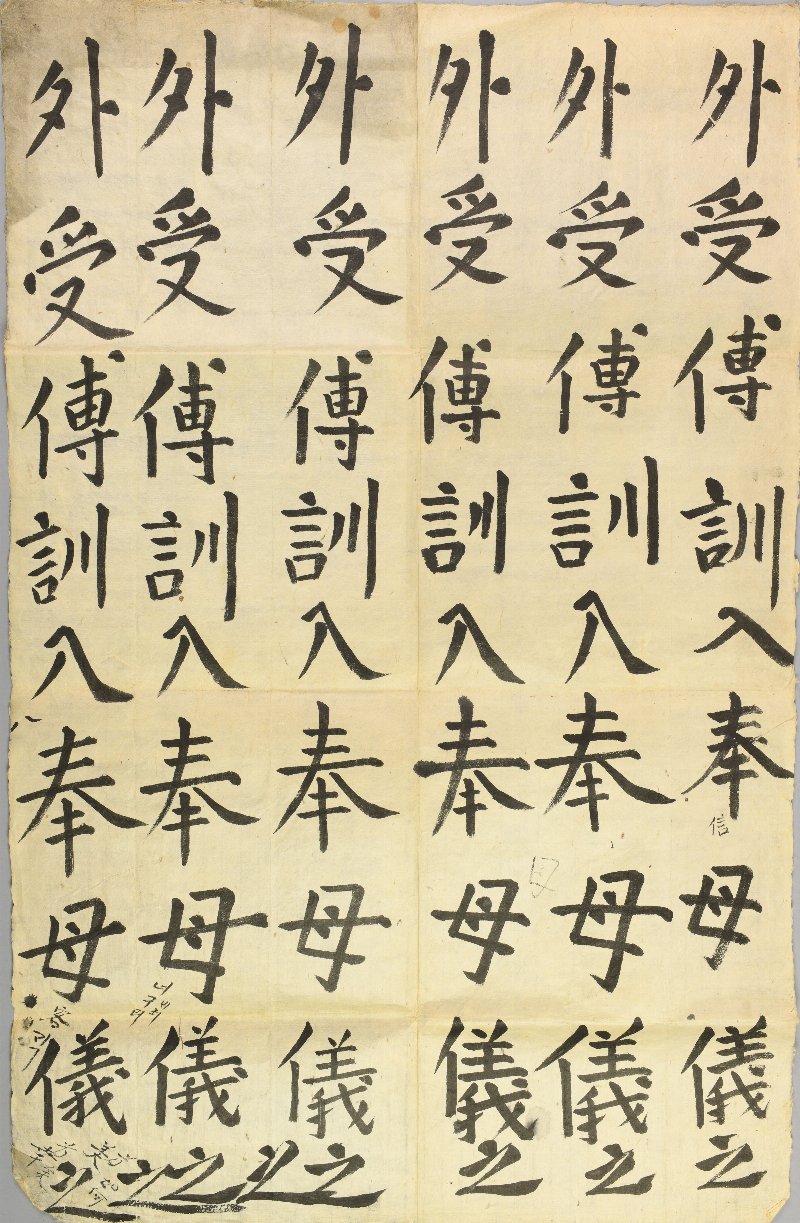 外受傅訓入奉母儀之
信
外受傅訓入奉母儀之
母
外受傅訓入奉母儀之
外受傅訓入奉母儀之
之
外受傅訓入奉母儀之
之
外受傅訓入奉母儀之